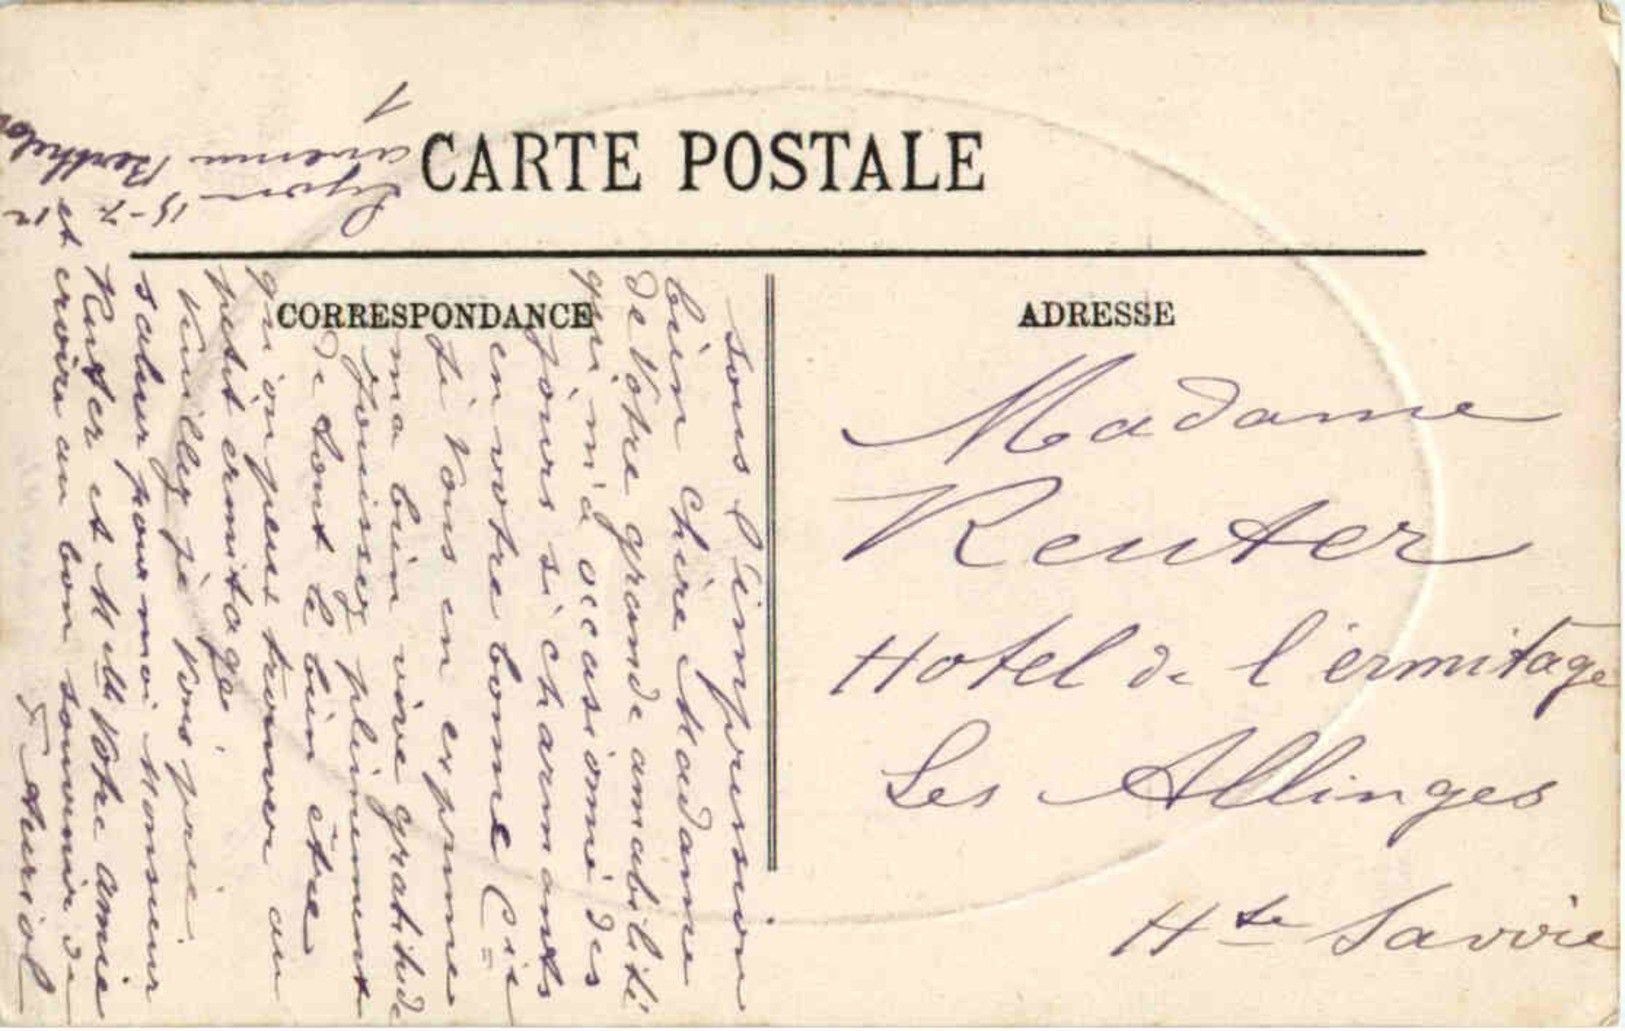 CARTE POSTALE
CORRESPONDANCE
ADRESSE
Lyon 15-7-12
1
avenue Berthelot
sous l'impression
bien chère Madame
de votre grande amabilité
qui m'a occasionné des
jours si charmants
en votre bonne Cie
je vous en exprime
ma bien vive gratitude
jouissez pleinement
de tout le bien être
qu'on peut trouver au
petit ermitage
Veuillez je vous prie
saluer pour moi Monsieur
Reuter et Melle votre amie
et croire au bon souvenir de
Auriol
Madame
Reuter
Hotel de l'ermitage
Les Allinges
Hte Savoie